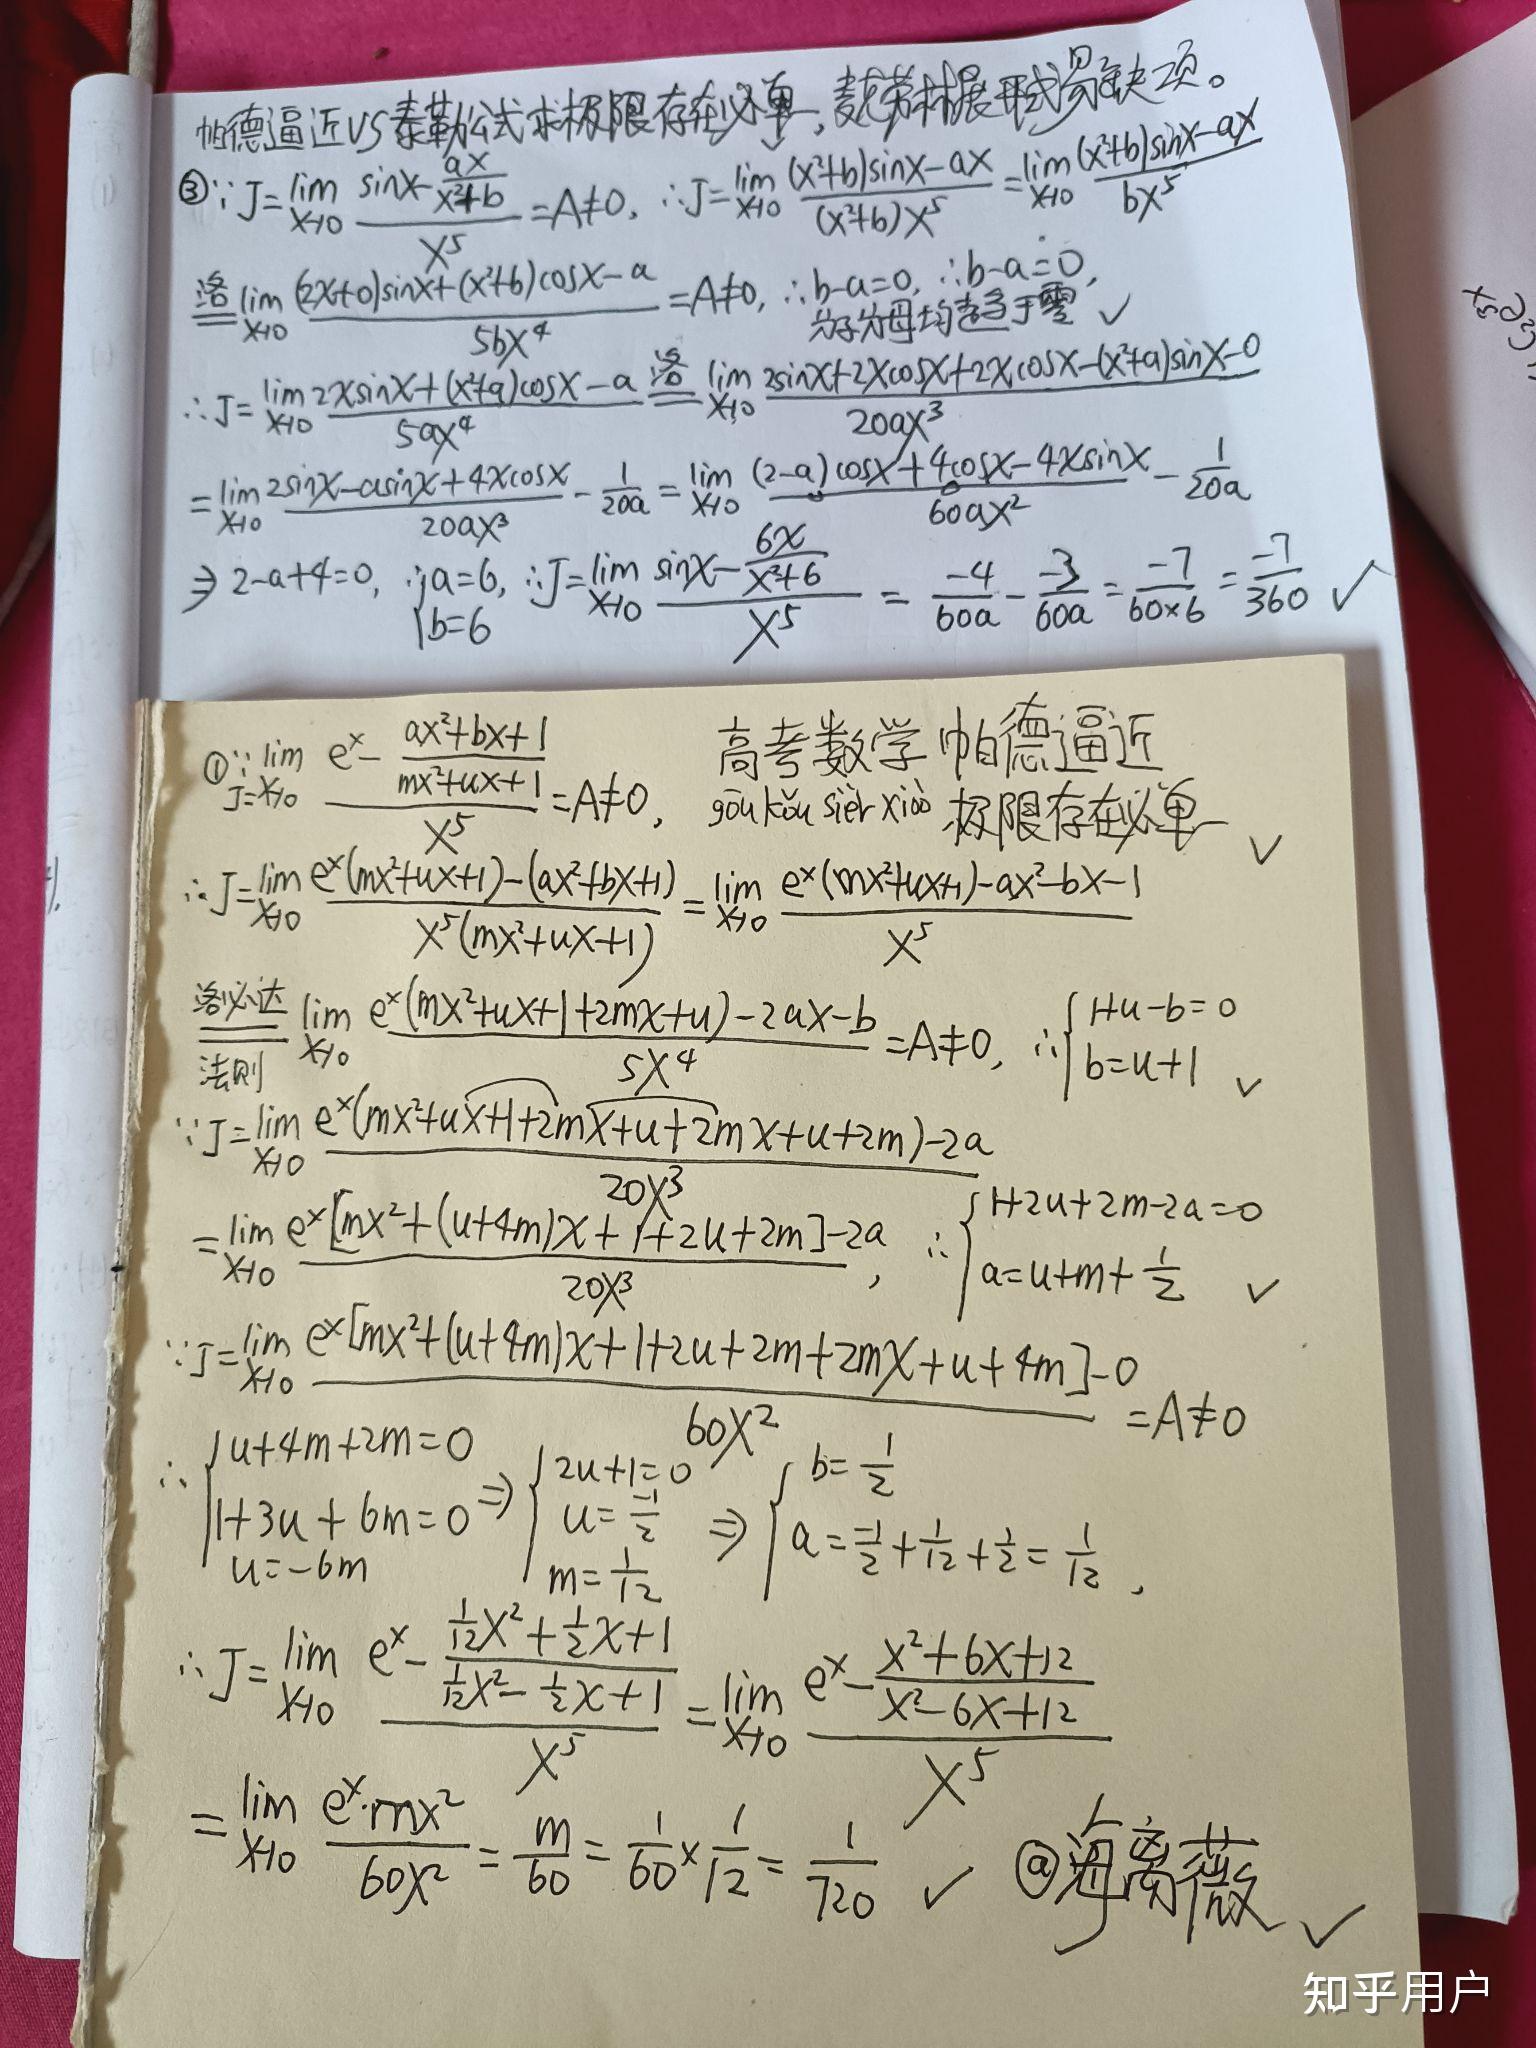 帕德逼近VS泰勒公式求极限存在必单,麦克劳林展开式易缺项。
③∵J=lim x→0 (sinx-ax/(x²+b))/x⁵=A≠0, ∴J=lim x→0 ((x²+b)sinx-ax)/((x²+b)x⁵)=lim x→0 ((x²+b)sinx-ax)/(bx⁵)
洛 lim x→0 ((2x+0)sinx+(x²+b)cosx-a)/(5bx⁴)=A≠0, ∴b-a=0, ∴b-a=0,
分子分母均趋于零 ✓
∴J=lim x→0 (2xsinx+(x²+a)cosx-a)/(5ax⁴) 洛 lim x→0 (2sinx+2xcosx+2xcosx-(x²+a)sinx-0)/(20ax³)
=lim x→0 (2sinx-asinx+4xcosx)/(20ax³)-1/(20a)=lim x→0 ((2-a)cosx+4cosx-4xsinx)/(60ax²)-1/(20a)
⇒2-a+4=0, ∴{a=6, b=6 ∴J=lim x→0 (sinx-6x/(x²+6))/x⁵=-4/(60a)-3/(60a)=-7/(60×6)=-7/360 ✓
①∵J=lim x→0 (eˣ-(ax²+bx+1)/(mx²+ux+1))/x⁵=A≠0,
高考数学 帕德逼近
gōu kǒu sièr xiào 极限存在必单 ✓
∴J=lim x→0 (eˣ(mx²+ux+1)-(ax²+bx+1))/(x⁵(mx²+ux+1))=lim x→0 (eˣ(mx²+ux+1)-ax²-bx-1)/x⁵
洛必达法则 lim x→0 (eˣ(mx²+ux+1+2mx+u)-2ax-b)/(5x⁴)=A≠0, ∴{1+u-b=0 b=u+1 ✓
∵J=lim x→0 (eˣ(mx²+ux+1+2mx+u+2mx+u+2m)-2a)/(20x³)
=lim x→0 (eˣ[mx²+(u+4m)x+1+2u+2m]-2a)/(20x³), ∴{1+2u+2m-2a=0 a=u+m+1/2 ✓
∵J=lim x→0 (eˣ[mx²+(u+4m)x+1+2u+2m+2mx+u+4m]-0)/(60x²)=A≠0
∴{u+4m+2m=0 1+3u+6m=0 u=-6m ⇒{2u+1=0 u=-1/2 m=1/12 ⇒{b=1/2 a=-1/2+1/12+1/2=1/12,
∴J=lim x→0 (eˣ-(1/12x²+1/2x+1)/(1/12x²-1/2x+1))/x⁵=lim x→0 (eˣ-(x²+6x+12)/(x²-6x+12))/x⁵
=lim x→0 (eˣ·mx²)/(60x²)=m/60=1/60×1/12=1/720 ✓ @海离薇 ✓
知乎用户